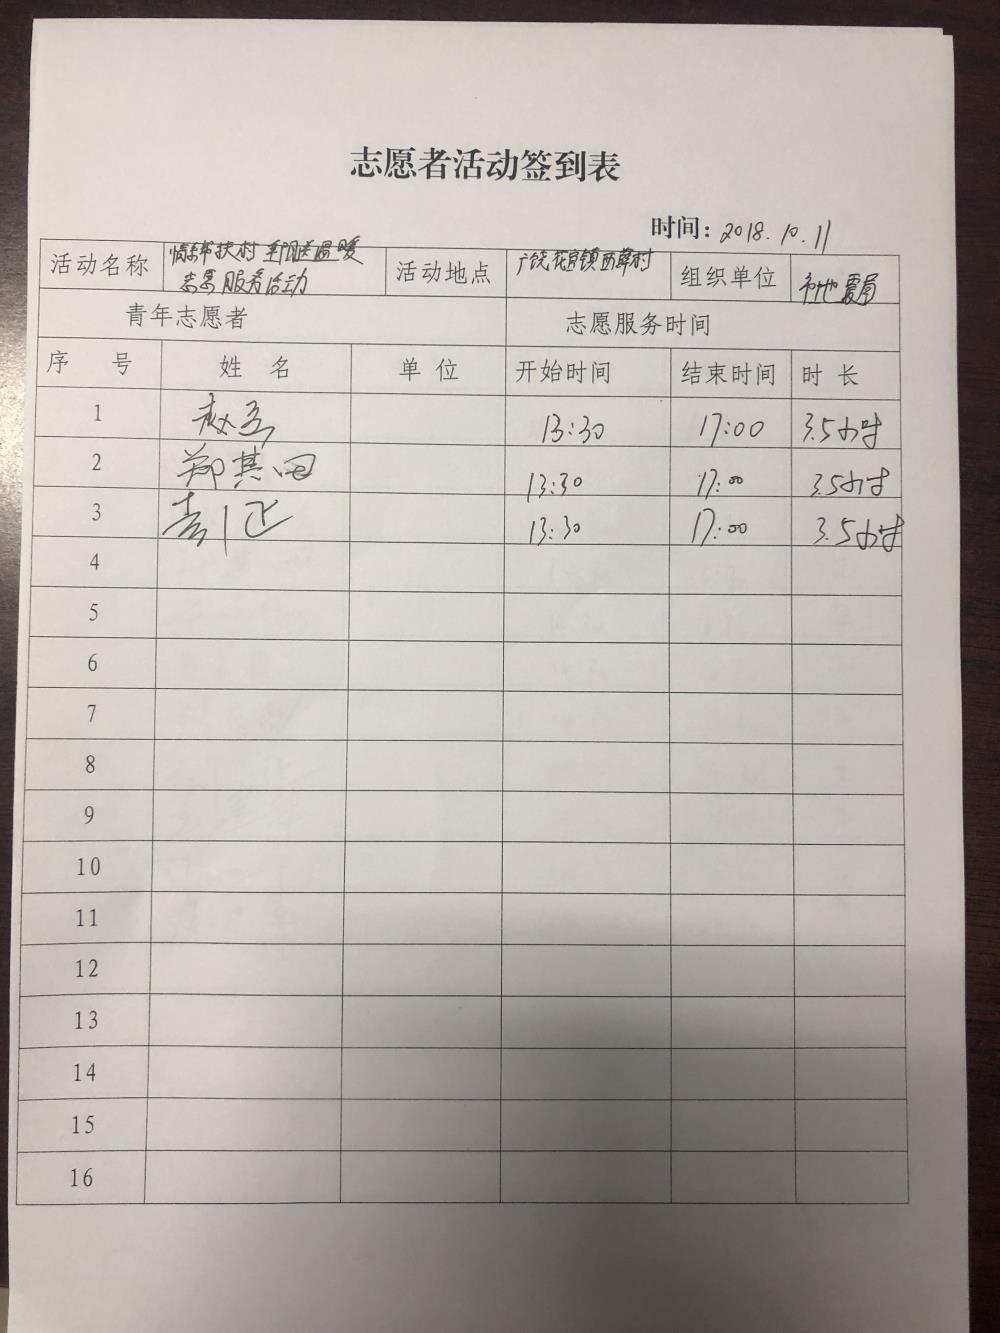 志愿者活动签到表
时间：2018.10.11
活动名称 情系帮扶村 重阳送温暖 活动地点 广饶花官镇西草村 组织单位 市地震局
志愿服务活动
青年志愿者 志愿服务时间
序 号 姓 名 单 位 开始时间 结束时间 时 长
1 13:30 17:00 3.5小时
2 郑其 13:30 17:00 3.5小时
3 13:30 17:00 3.5小时
4
5
6
7
8
9
10
11
12
13
14
15
16